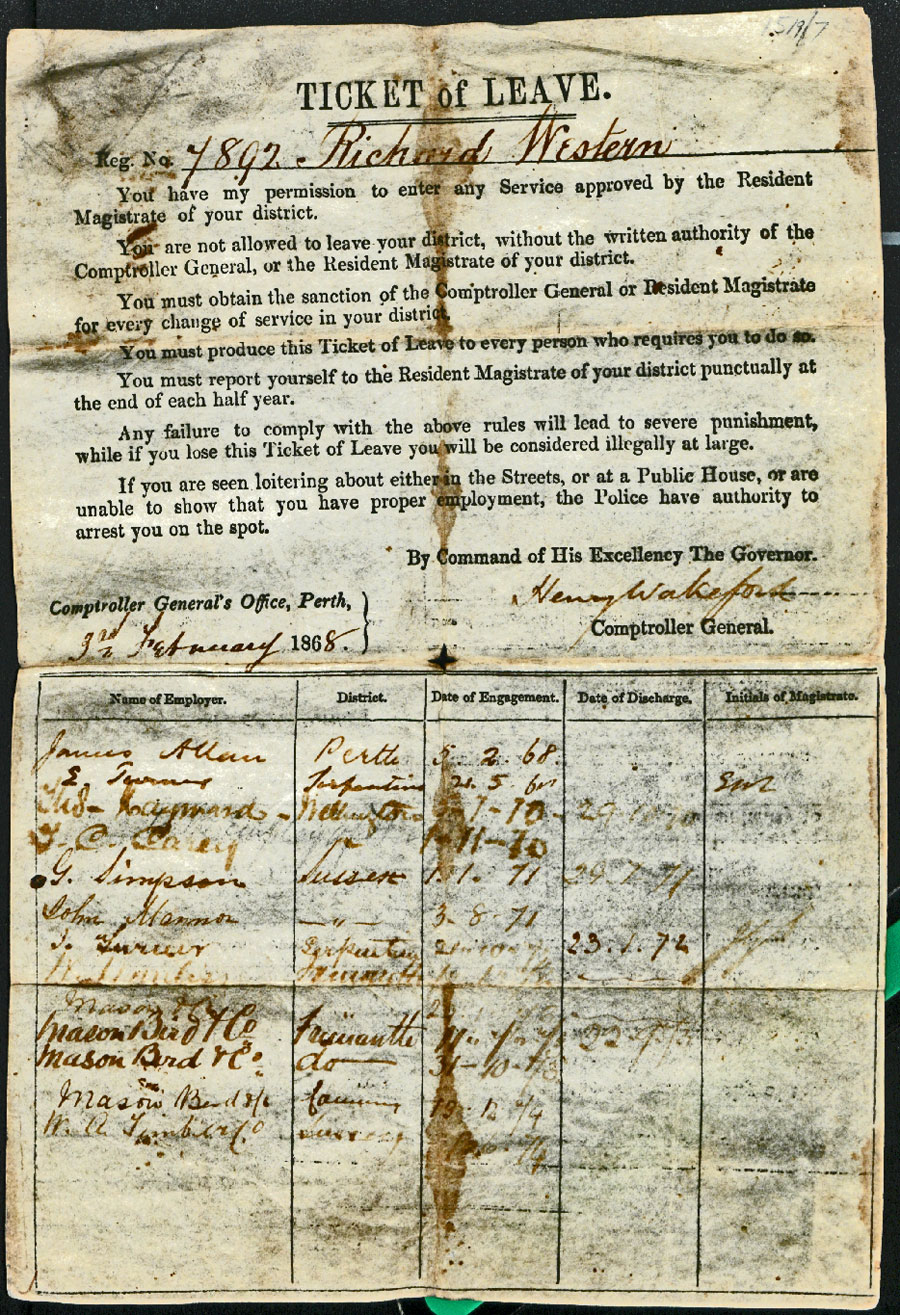 TICKET of LEAVE.
Reg. No. 7892. Richard Western
You have my permission to enter any Service approved by the Resident
Magistrate of your district.
You are not allowed to leave your district, without the written authority of the
Comptroller General, or the Resident Magistrate of your district.
You must obtain the sanction of the Comptroller General or Resident Magistrate
for every change of service in your district.
You must produce this Ticket of Leave to every person who requires you to do so.
You must report yourself to the Resident Magistrate of your district punctually at
the end of each half year.
Any failure to comply with the above rules will lead to severe punishment,
while if you lose this Ticket of Leave you will be considered illegally at large.
If you are seen loitering about either in the Streets, or at a Public House, or are
unable to show that you have proper employment, the Police have authority to
arrest you on the spot.
By Command of His Excellency The Governor.
Henry Wakeford
Comptroller General's Office, Perth,
Comptroller General.
3rd February 1868.
Name of Employer. District. Date of Engagement. Date of Discharge. Initials of Magistrate.
James Allan Perth 5. 2. 68.
E. Turner Serpentine
Hayward
1-11-70
G. Simpson Sussex 71 29. 7. 71
John 3. 8. 71
J. Turner Serpentine 23. 1. 72
Mason
Mason Bird & Co Fremantle
Mason Bird & Co. do 31-10-73
Mason Bird & Co Canning 12 74
W. A. Timber Co